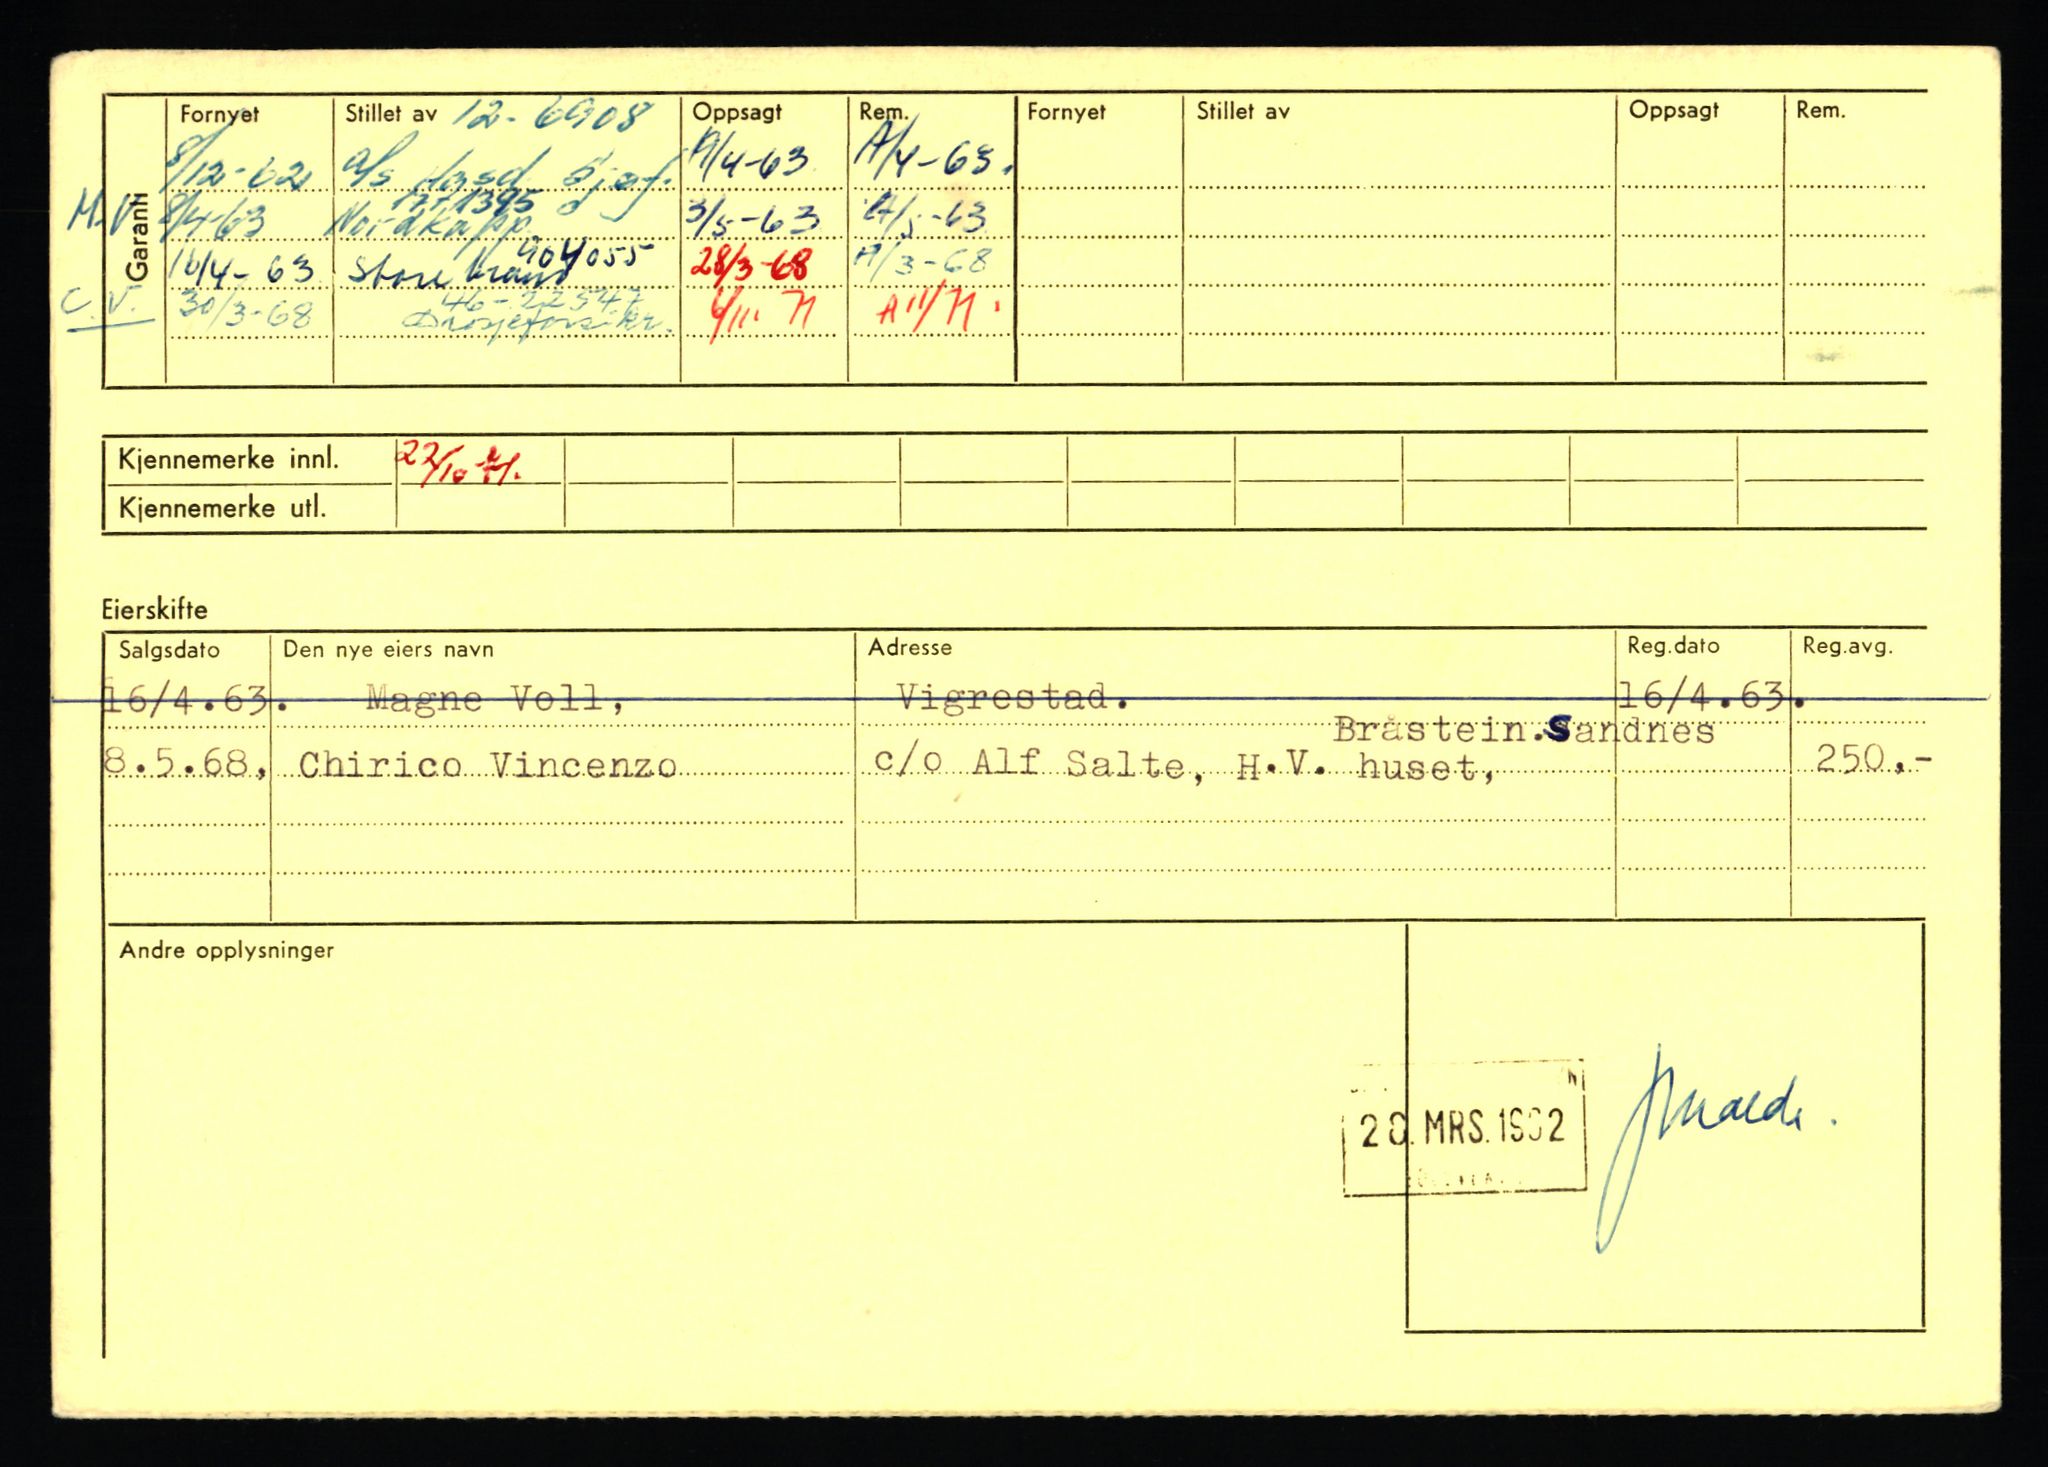 Fornyet Stillet av 12-6908 Oppsagt Rem. Fornyet Stillet av Oppsagt Rem.
8/12-62 a/s /4-63 A/4-63.
Garanti
M.V 8/4-63 Nordkapp 3/5-63 /5-63
904055
16/4-63 Storebrand 28/3-68 A/3-68
46-22547
C.V. 30/3-68 Drosjeforsikr.
Kjennemerke innl. 22/10-71.
Kjennemerke utl.
Eierskifte
Salgsdato Den nye eiers navn Adresse Reg.dato Reg.avg.
16/4.63. Magne Voll, Vigrestad. 16/4.63.
Bråstein.Sandnes
8.5.68, Chirico Vincenzo c/o Alf Salte, H.V. huset, 250,-
Andre opplysninger
20. MRS. 1962